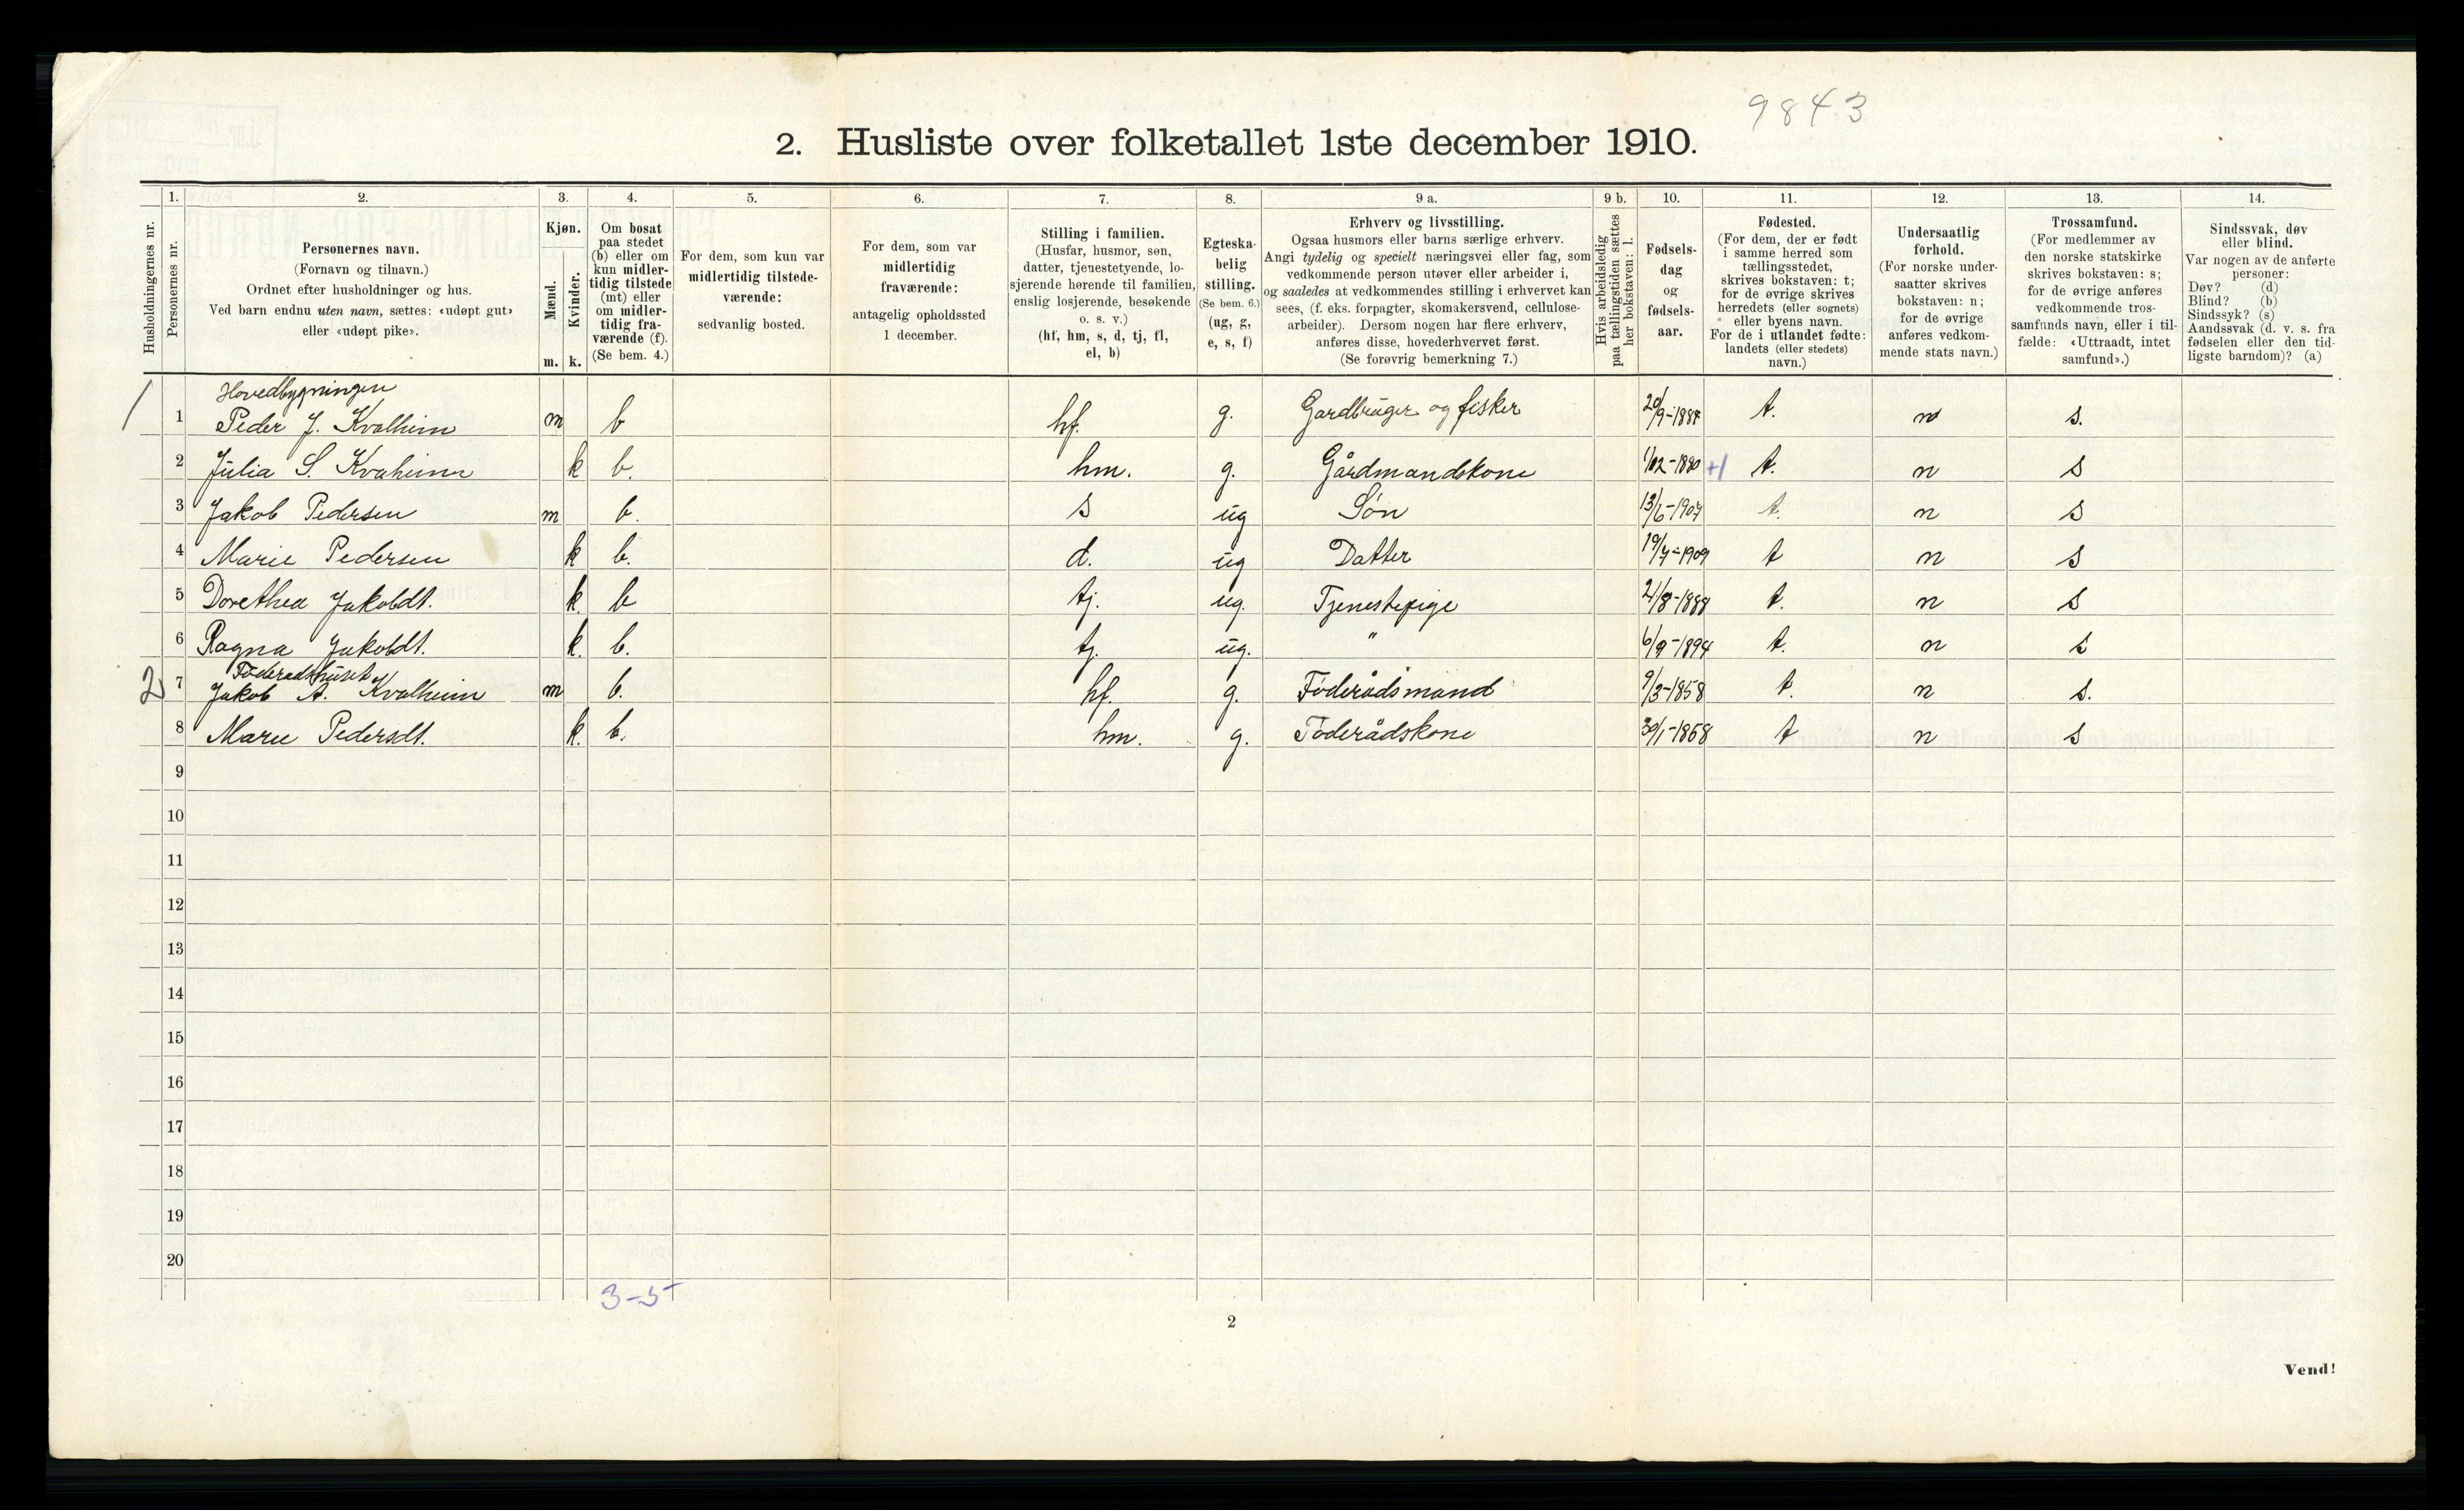 9843
2. Husliste over folketallet 1ste december 1910.
Husholdningernes nr.
1.
Personernes nr.
2.
Personernes navn.
(Fornavn og tilnavn.)
Ordnet efter husholdninger og hus.
Ved barn endnu uten navn, sættes: «udøpt gut»
eller «udøpt pike».
3.
Kjøn.
Mænd.
Kvinder.
m. k.
4.
Om bosat
paa stedet
(b) eller om
kun midler-
tidig tilstede
(mt) eller
om midler-
tidig fra-
værende (f).
(Se bem. 4.)
5.
For dem, som kun var
midlertidig tilstede-
værende:
sedvanlig bosted.
6.
For dem, som var
midlertidig
fraværende:
antagelig opholdssted
1 december.
7.
Stilling i familien.
(Husfar, husmor, søn,
datter, tjenestetyende, lo-
sjerende hørende til familien,
enslig losjerende, besøkende
o. s. v.)
(hf, hm, s, d, tj, fl,
el, b)
8.
Egteska-
belig
stilling.
(Se bem. 6.)
(ug, g,
e, s, f)
9 a.
Erhverv og livsstilling.
Ogsaa husmors eller barns særlige erhverv.
Angi tydelig og specielt næringsvei eller fag, som
vedkommende person utøver eller arbeider i,
og saaledes at vedkommendes stilling i erhvervet kan
sees, (f. eks. forpagter, skomakersvend, cellulose-
arbeider). Dersom nogen har flere erhverv,
anføres disse, hovederhvervet først.
(Se forøvrig bemerkning 7.)
9 b.
Hvis arbeidsledig
paa tællingstiden sættes
her bokstaven: l.
10.
Fødsels-
dag
og
fødsels-
aar.
11.
Fødested.
(For dem, der er født
i samme herred som
tællingsstedet,
skrives bokstaven: t;
for de øvrige skrives
herredets (eller sognets)
eller byens navn.
For de i utlandet fødte:
landets (eller stedets)
navn.)
12.
Undersaatlig
forhold.
(For norske under-
saatter skrives
bokstaven: n;
for de øvrige
anføres vedkom-
mende stats navn.)
13.
Trossamfund.
(For medlemmer av
den norske statskirke
skrives bokstaven: s;
for de øvrige anføres
vedkommende tros-
samfunds navn, eller i til-
fælde: «Uttraadt, intet
samfund».)
14.
Sindssvak, døv
eller blind.
Var nogen av de anførte
personer:
Døv? (d)
Blind? (b)
Sindssyk? (s)
Aandssvak (d. v. s. fra
fødselen eller den tid-
ligste barndom)? (a)
Hovedbygningen
1 1 Peder J. Kvalheim m b hf. g. Gardbruger og fisker 20/9-1884 t. n s.
2 Julia S. Kvaheim k b. hm. g. Gårdmandskone 1/02-1880 +1 t. n s
3 Jakob Pedersen m b. s ug Søn 13/6-1907 t. n s
4 Marie Pedersen k b. d. ug Datter 19/7-1909 t n s
5 Dorethea Jakobdt. k. b tj. ug. Tjenestepige 21/8-1888 t. n s
6 Ragna Jakobdt. k. b. tj. ug. " 6/9-1894 t. n s
Føderadshuset
2 7 Jakob A. Kvalheim m b. hf. g. Føderådsmand 9/3-1858 t. n s.
8 Marie Pedersdt. k. b. hm. g. Føderådskone 30/1-1858 t n s
9
10
11
12
13
14
15
16
17
18
19
20
3-5
2
Vend!